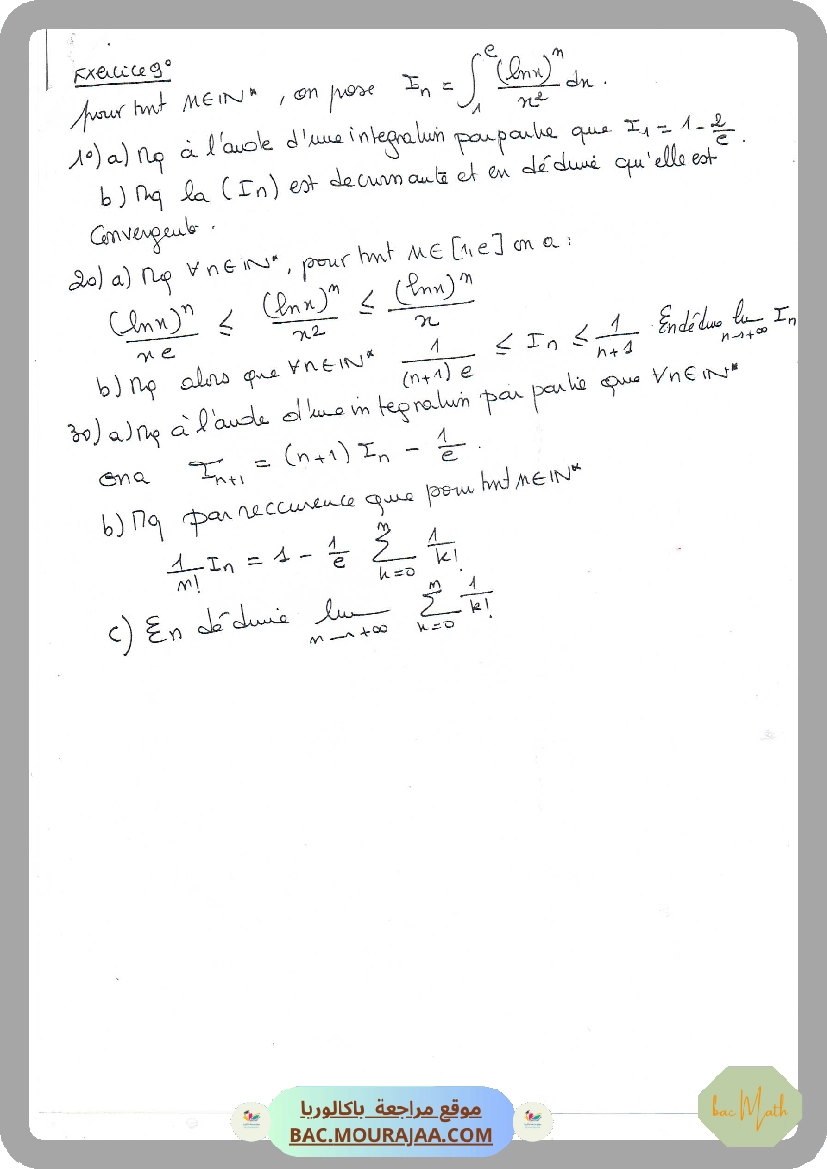 Exercice 9°
pour tout n∈IN*, on pose I_n = ∫_1^e (lnx)^n / x² dx.
1°) a) Mq à l'aide d'une integration par partie que I_1 = 1 - 2/e.
b) Mq la (I_n) est decroissante et en déduire qu'elle est
Convergente.
2°) a) Mq ∀n∈IN*, pour tout x∈[1,e] on a :
(lnx)^n / xe ≤ (lnx)^n / x² ≤ (lnx)^n / x
b) Mq alors que ∀n∈IN* 1/((n+1)e) ≤ I_n ≤ 1/(n+1). En déduire lim_{n→+∞} I_n
3°) a) Mq à l'aide d'une integration par partie que ∀n∈IN*
ona I_{n+1} = (n+1) I_n - 1/e.
b) Mq par reccurence que pour tout n∈IN*
1/n! I_n = 1 - 1/e ∑_{k=0}^n 1/k!
c) En déduire lim_{n→+∞} ∑_{k=0}^n 1/k!
موقع مراجعة باكالوريا
BAC.MOURAJAA.COM
bac Math